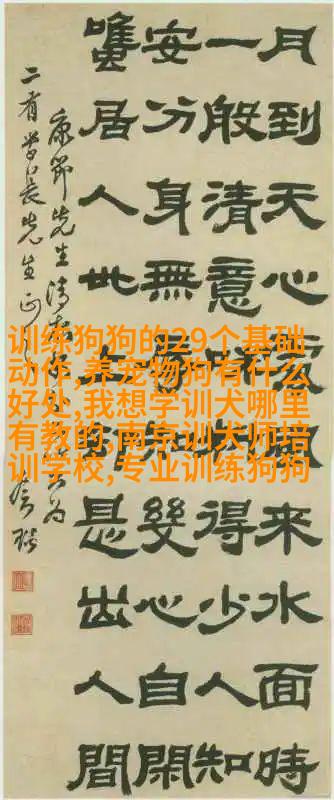 训练狗狗的29个基础
动作,养宠物狗有什么
好处,我想学训犬哪里
有教的,南京训犬师培
训学校,专业训练狗狗
月到天心處風來水面時
一般清意味料得少人知
安分身無辱幾心自閑
雖居人世上卻是出人間
康節先生清夜吟為
二有學長先生正